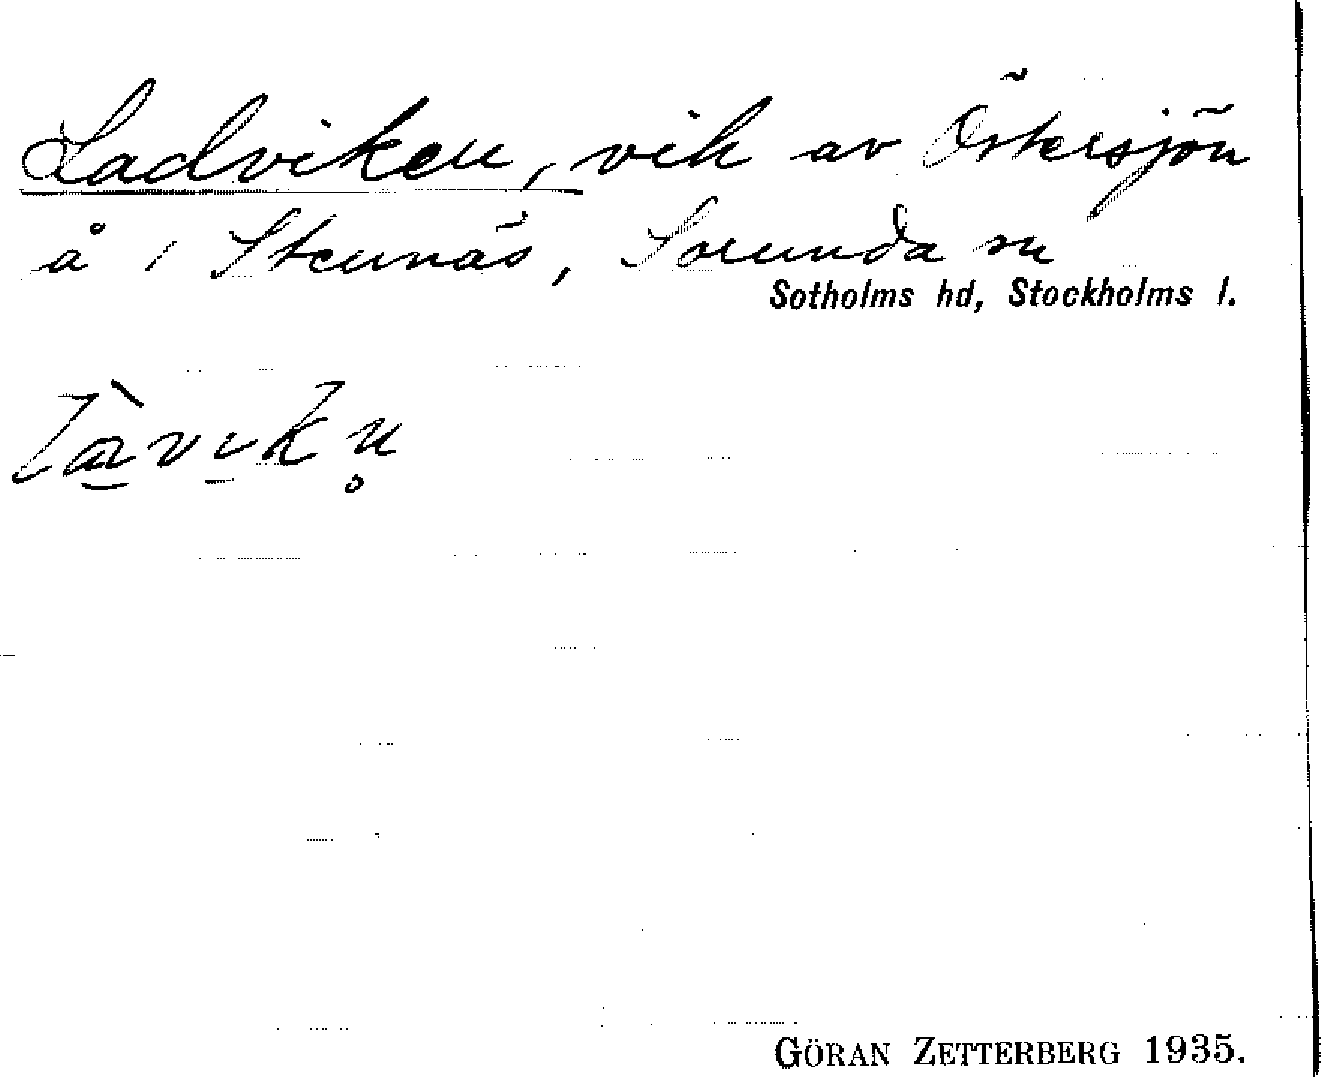 Ladviken, vik av Östersjön
å 1 Stennäs, Sorunda sn
Sotholms hd, Stockholms l.
GÖRAN ZETTERBERG 1935.